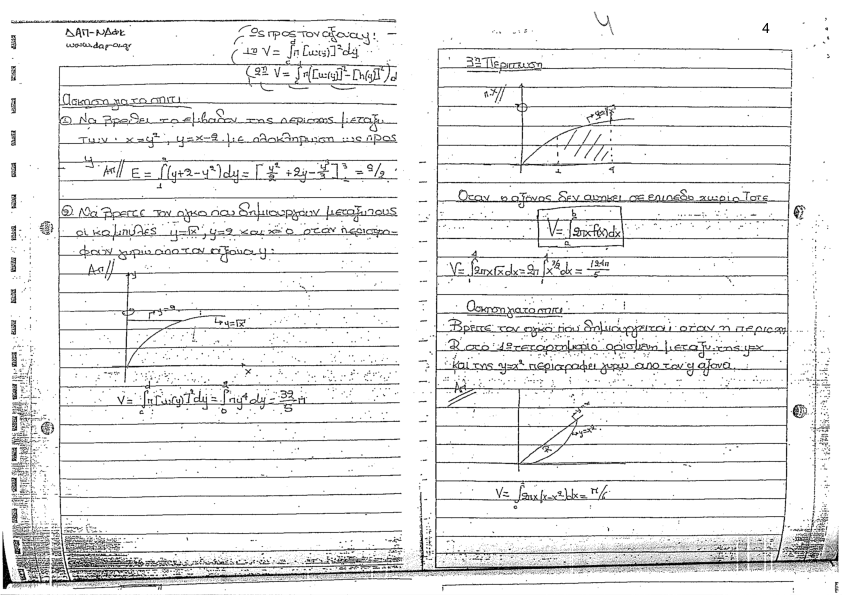 ΔΑΠ-ΝΔΦΚ
www.dap.gr
Ως προς τον άξονα y:
1η V = ∫π[w(y)]²dy
(2η V = ∫π([w(y)]²-[h(y)]²)d
Άσκηση για το σπίτι
① Να βρεθεί το εμβαδόν της περιοχής μεταξύ
των: x=y², y=x-2 με ολοκλήρωση ως προς
y.
Απ// E = ∫(y+2-y²)dy = [y²/2 + 2y - y³/3] = 9/2
② Να βρείτε τον όγκο που δημιουργούν μεταξύ τους
οι καμπύλες y=√x, y=2 και x=0 όταν περιστρα-
φούν γύρω από τον άξονα y:
Απ//
y
y=2
y=√x
x
V = ∫π[w(y)]²dy = ∫πy⁴dy = 32/5 π
4
4
3η Περίπτωση
π.χ//
y=√x
1
4
Όταν ο άξονας δεν ανήκει σε επίπεδο χωρίο τότε
V = ∫2πxf(x)dx
V = ∫2πx√x dx = 2π∫x^{3/2}dx = 124π/5
Άσκηση για το σπίτι
Βρείτε τον όγκο που δημιουργείται όταν η περιοχή
R στο 1ο τεταρτημόριο ορισμένη μεταξύ της y=x
και της y=x² περιστραφεί γύρω από τον y άξονα.
Απ
y=x
y=x²
R
V = ∫2πx(x-x²)dx = π/6